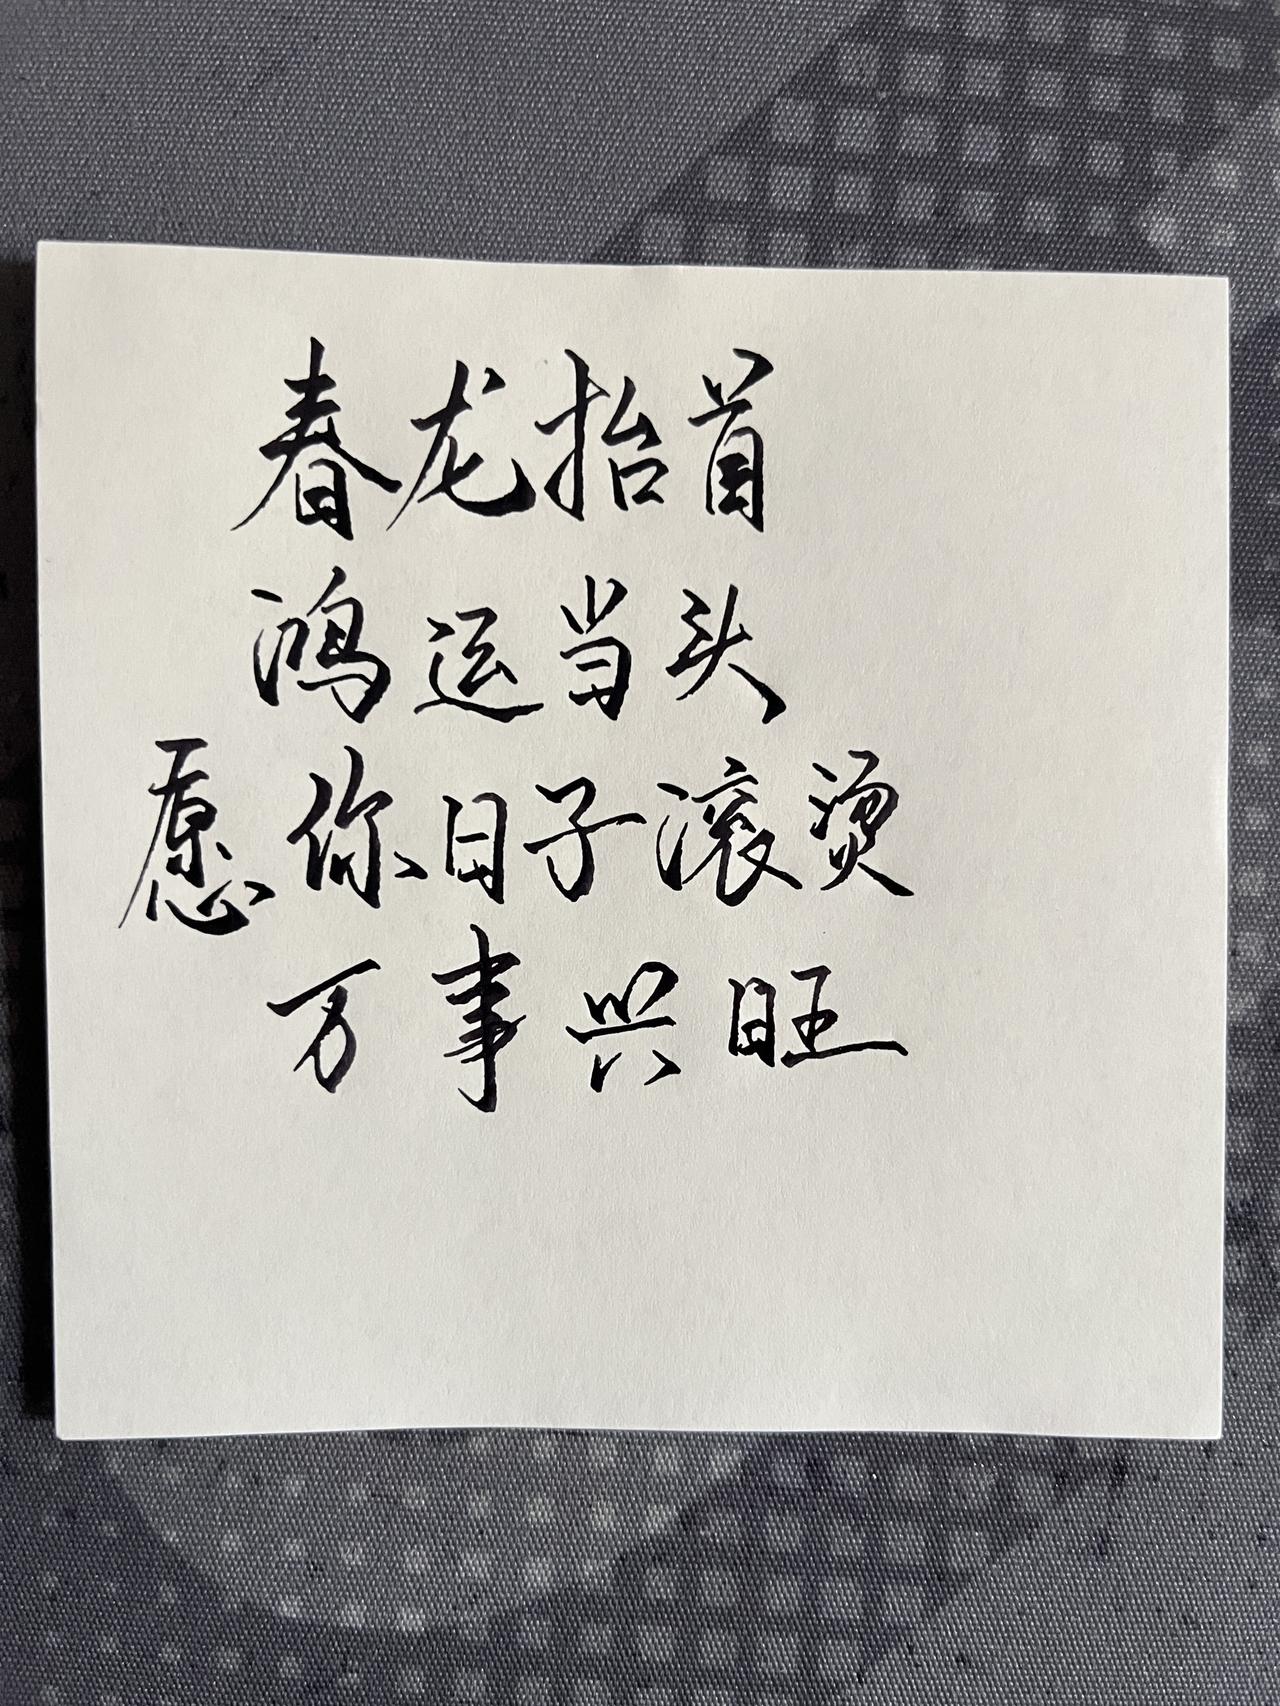 春龙抬首
鸿运当头
愿你日子滚烫
万事兴旺